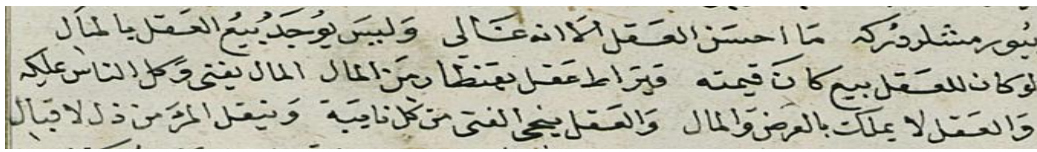 بيور مشلردركه ما احسن العقل الا انه غالي وليس يوجد بيع العقل بالمال
لو كان للعقل بيع كان قيمته قيراط عقل بقنطار من المال المال يفنى وكل الناس عليكه
والعقل لا يملك بالعرض والمال والعقل ينجى الفتى من كل نايبة وينقل المرء من ذل لاقبال